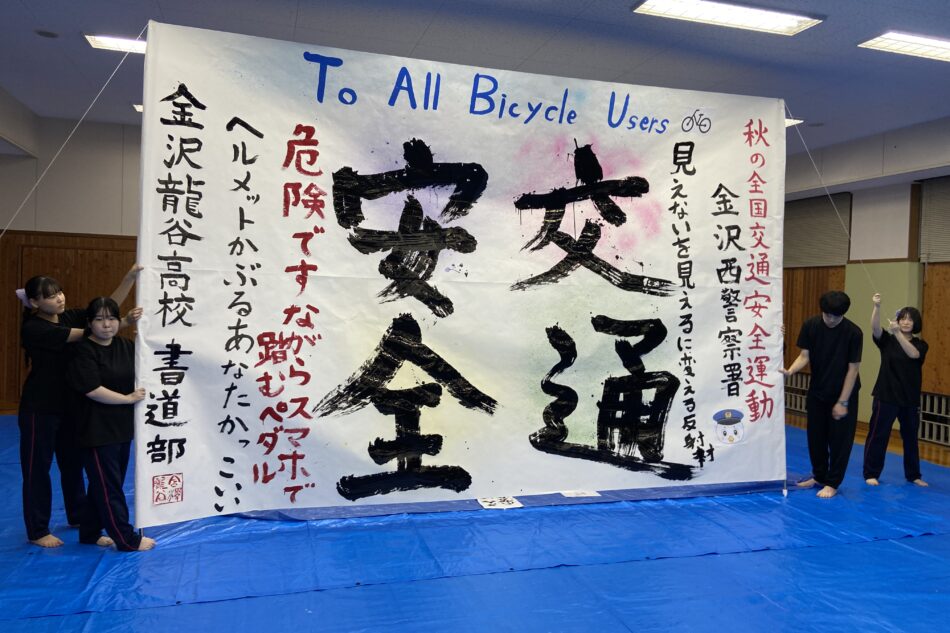 To All Bicycle Users
秋の全国交通安全運動
金沢西警察署
見えないを見えるに変える反射材
交通
安全
危険ですながらスマホで
踏むペダル
ヘルメットかぶるあなたかっこいい
金沢龍谷高校 書道部